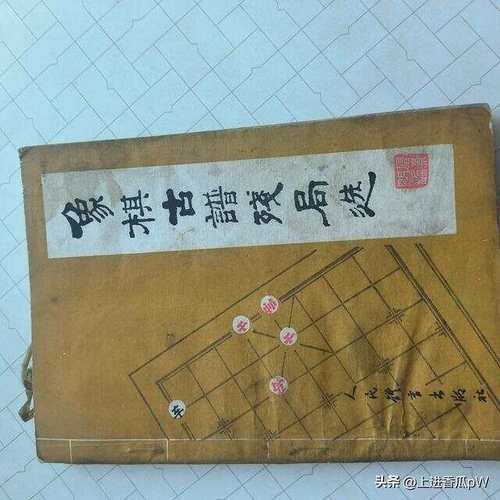 象棋古譜残局选
人民体育出版社
头条 @上进香瓜pW